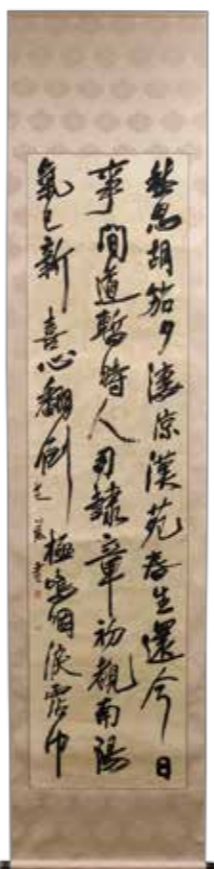 愁思胡笳夕淒涼漢苑春生還今日
事間道暫時人司隸章初覩南陽
氣已新喜心翻倒極嗚咽淚沾巾